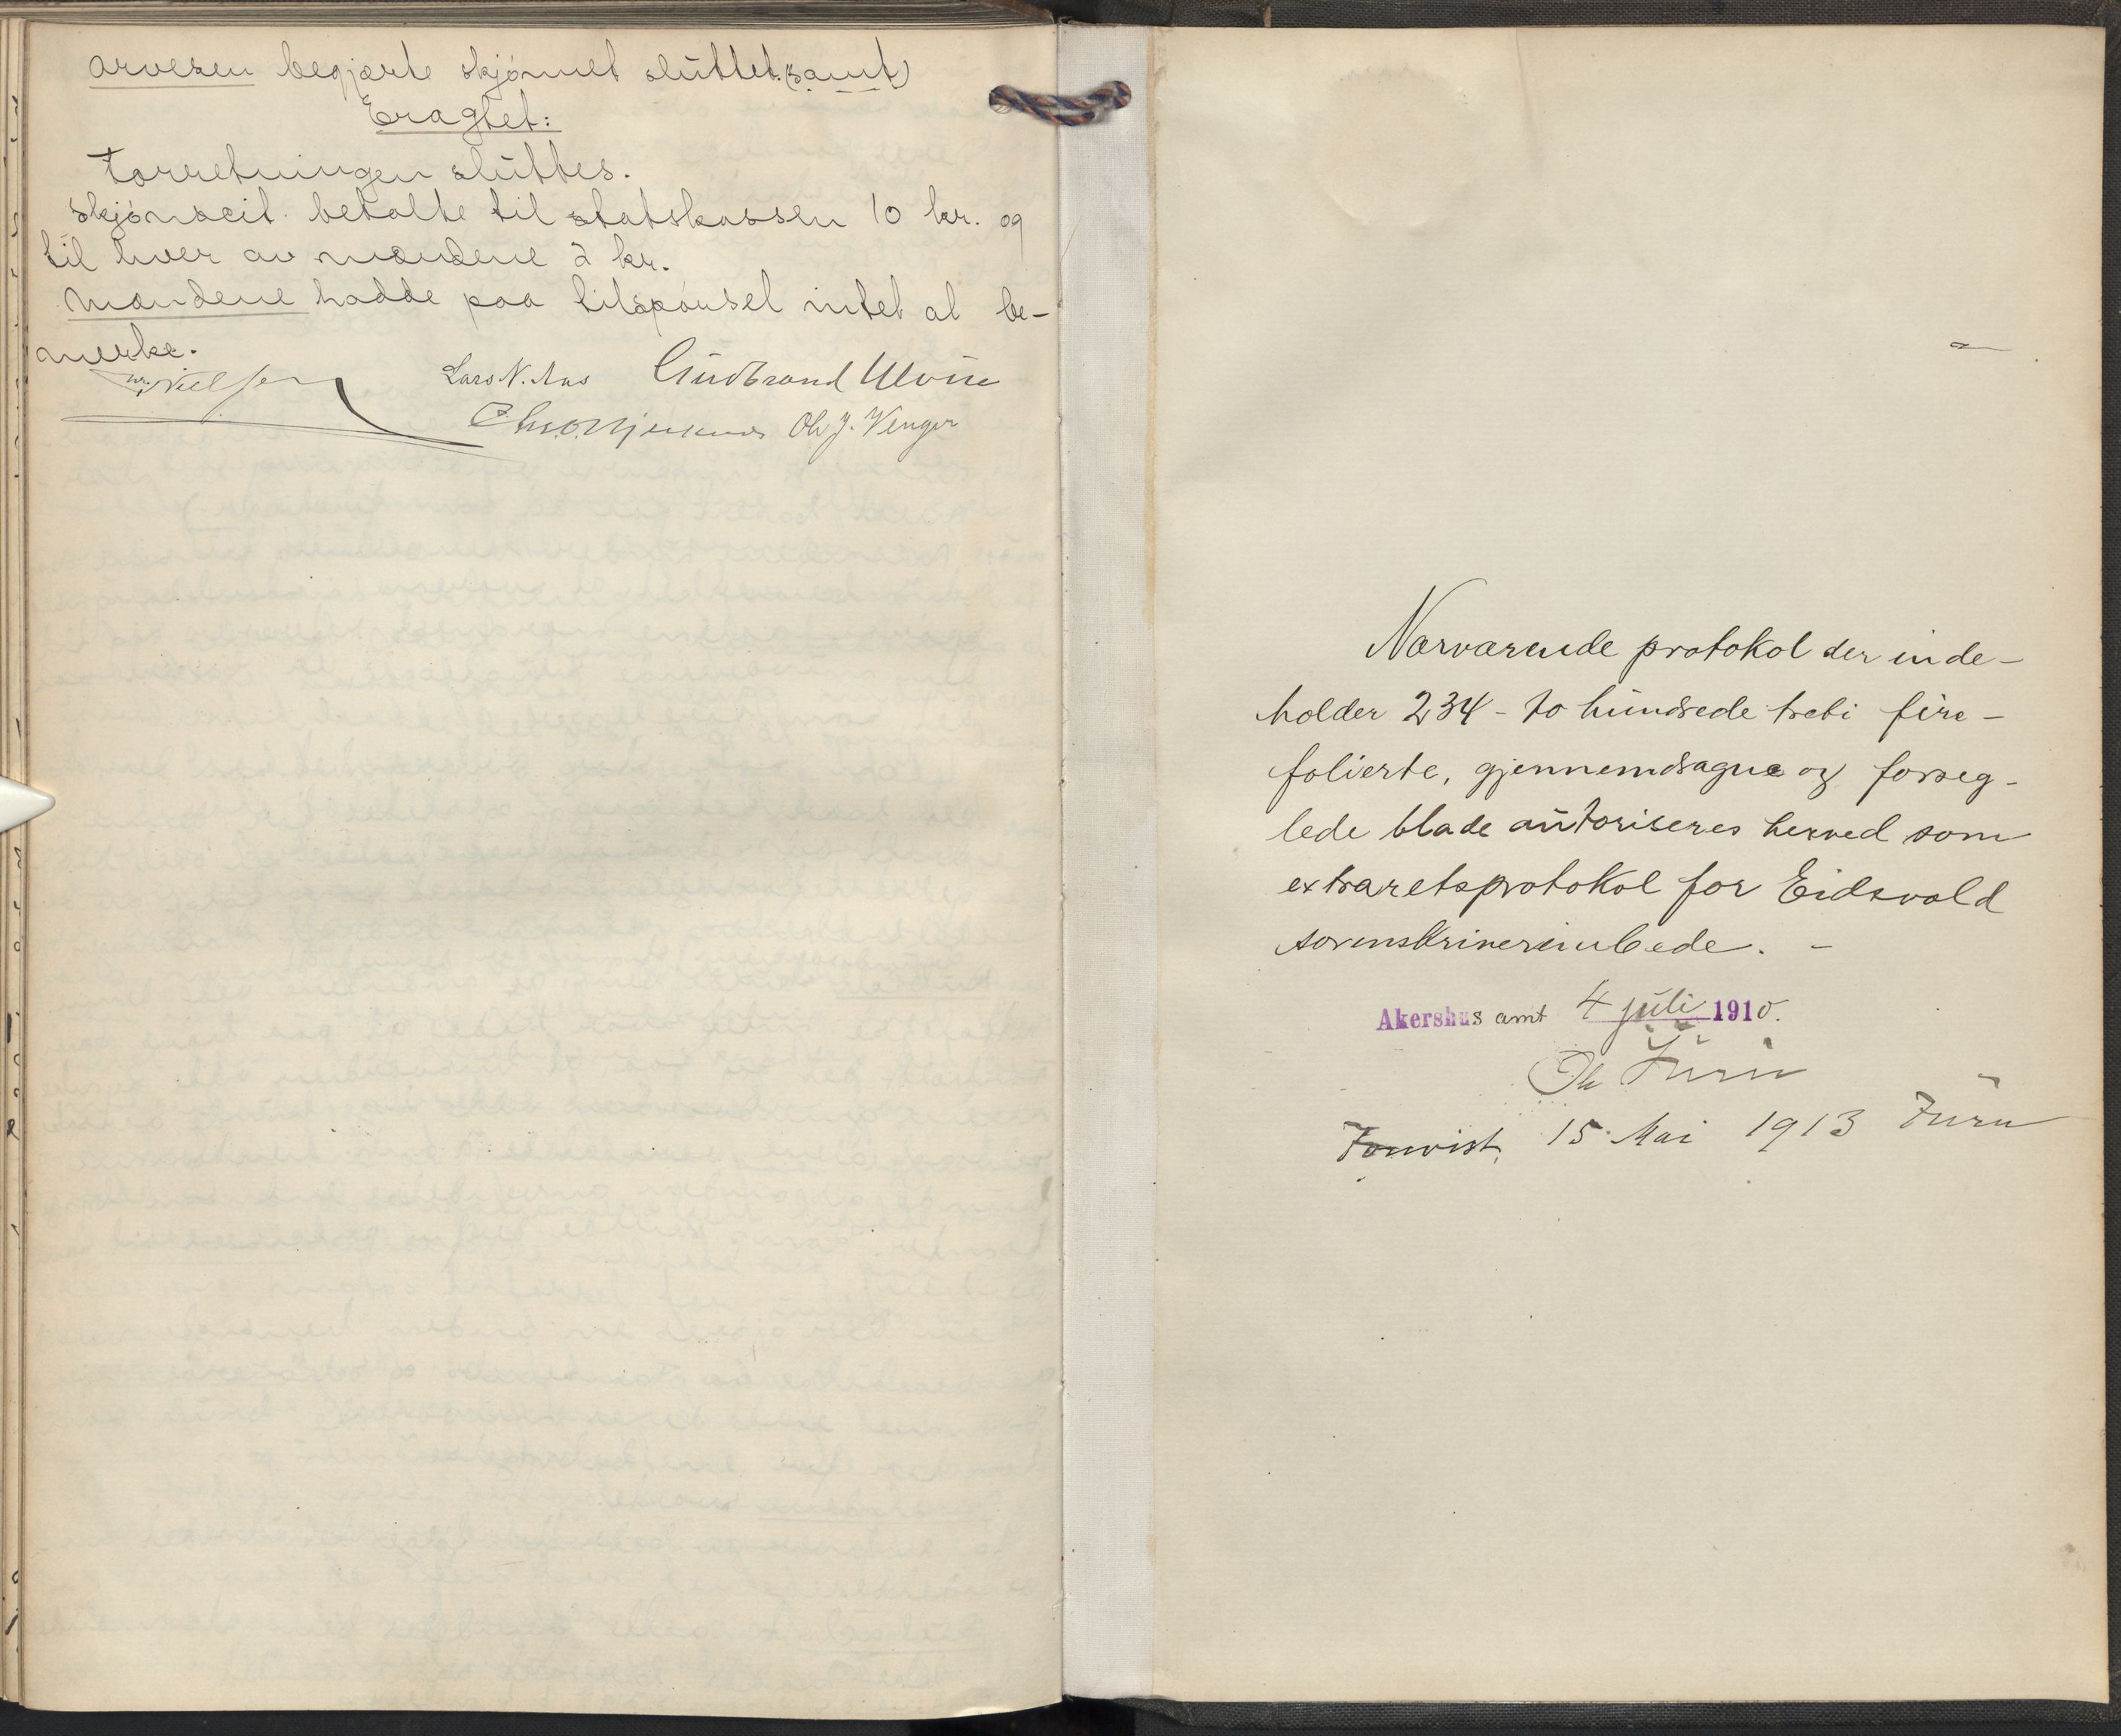 Arvesen begjærte skjønnet sluttet. (samt)
Eragtet:
Forretningen sluttes.
Skjønsreit. betalte til statskassen 10 kr. og
til hver av mændene 2 kr.
Mændene hadde paa tilspørsel intet at be-
merke.
Nielsen Lars N. Aas Gudbrand Ulvin
Ole J. Venger
Nærværende protokol der inde-
holder 234 - to hundrede treti fire -
folierte, gjennemdragne og forseg-
lede blade autoriseres herved som
extraretsprotokol for Eidsvold
sorenskriverembede. -
Akershus amt 4 juli 1910.
Th Furu
Forevist, 15 Mai 1913 Furu